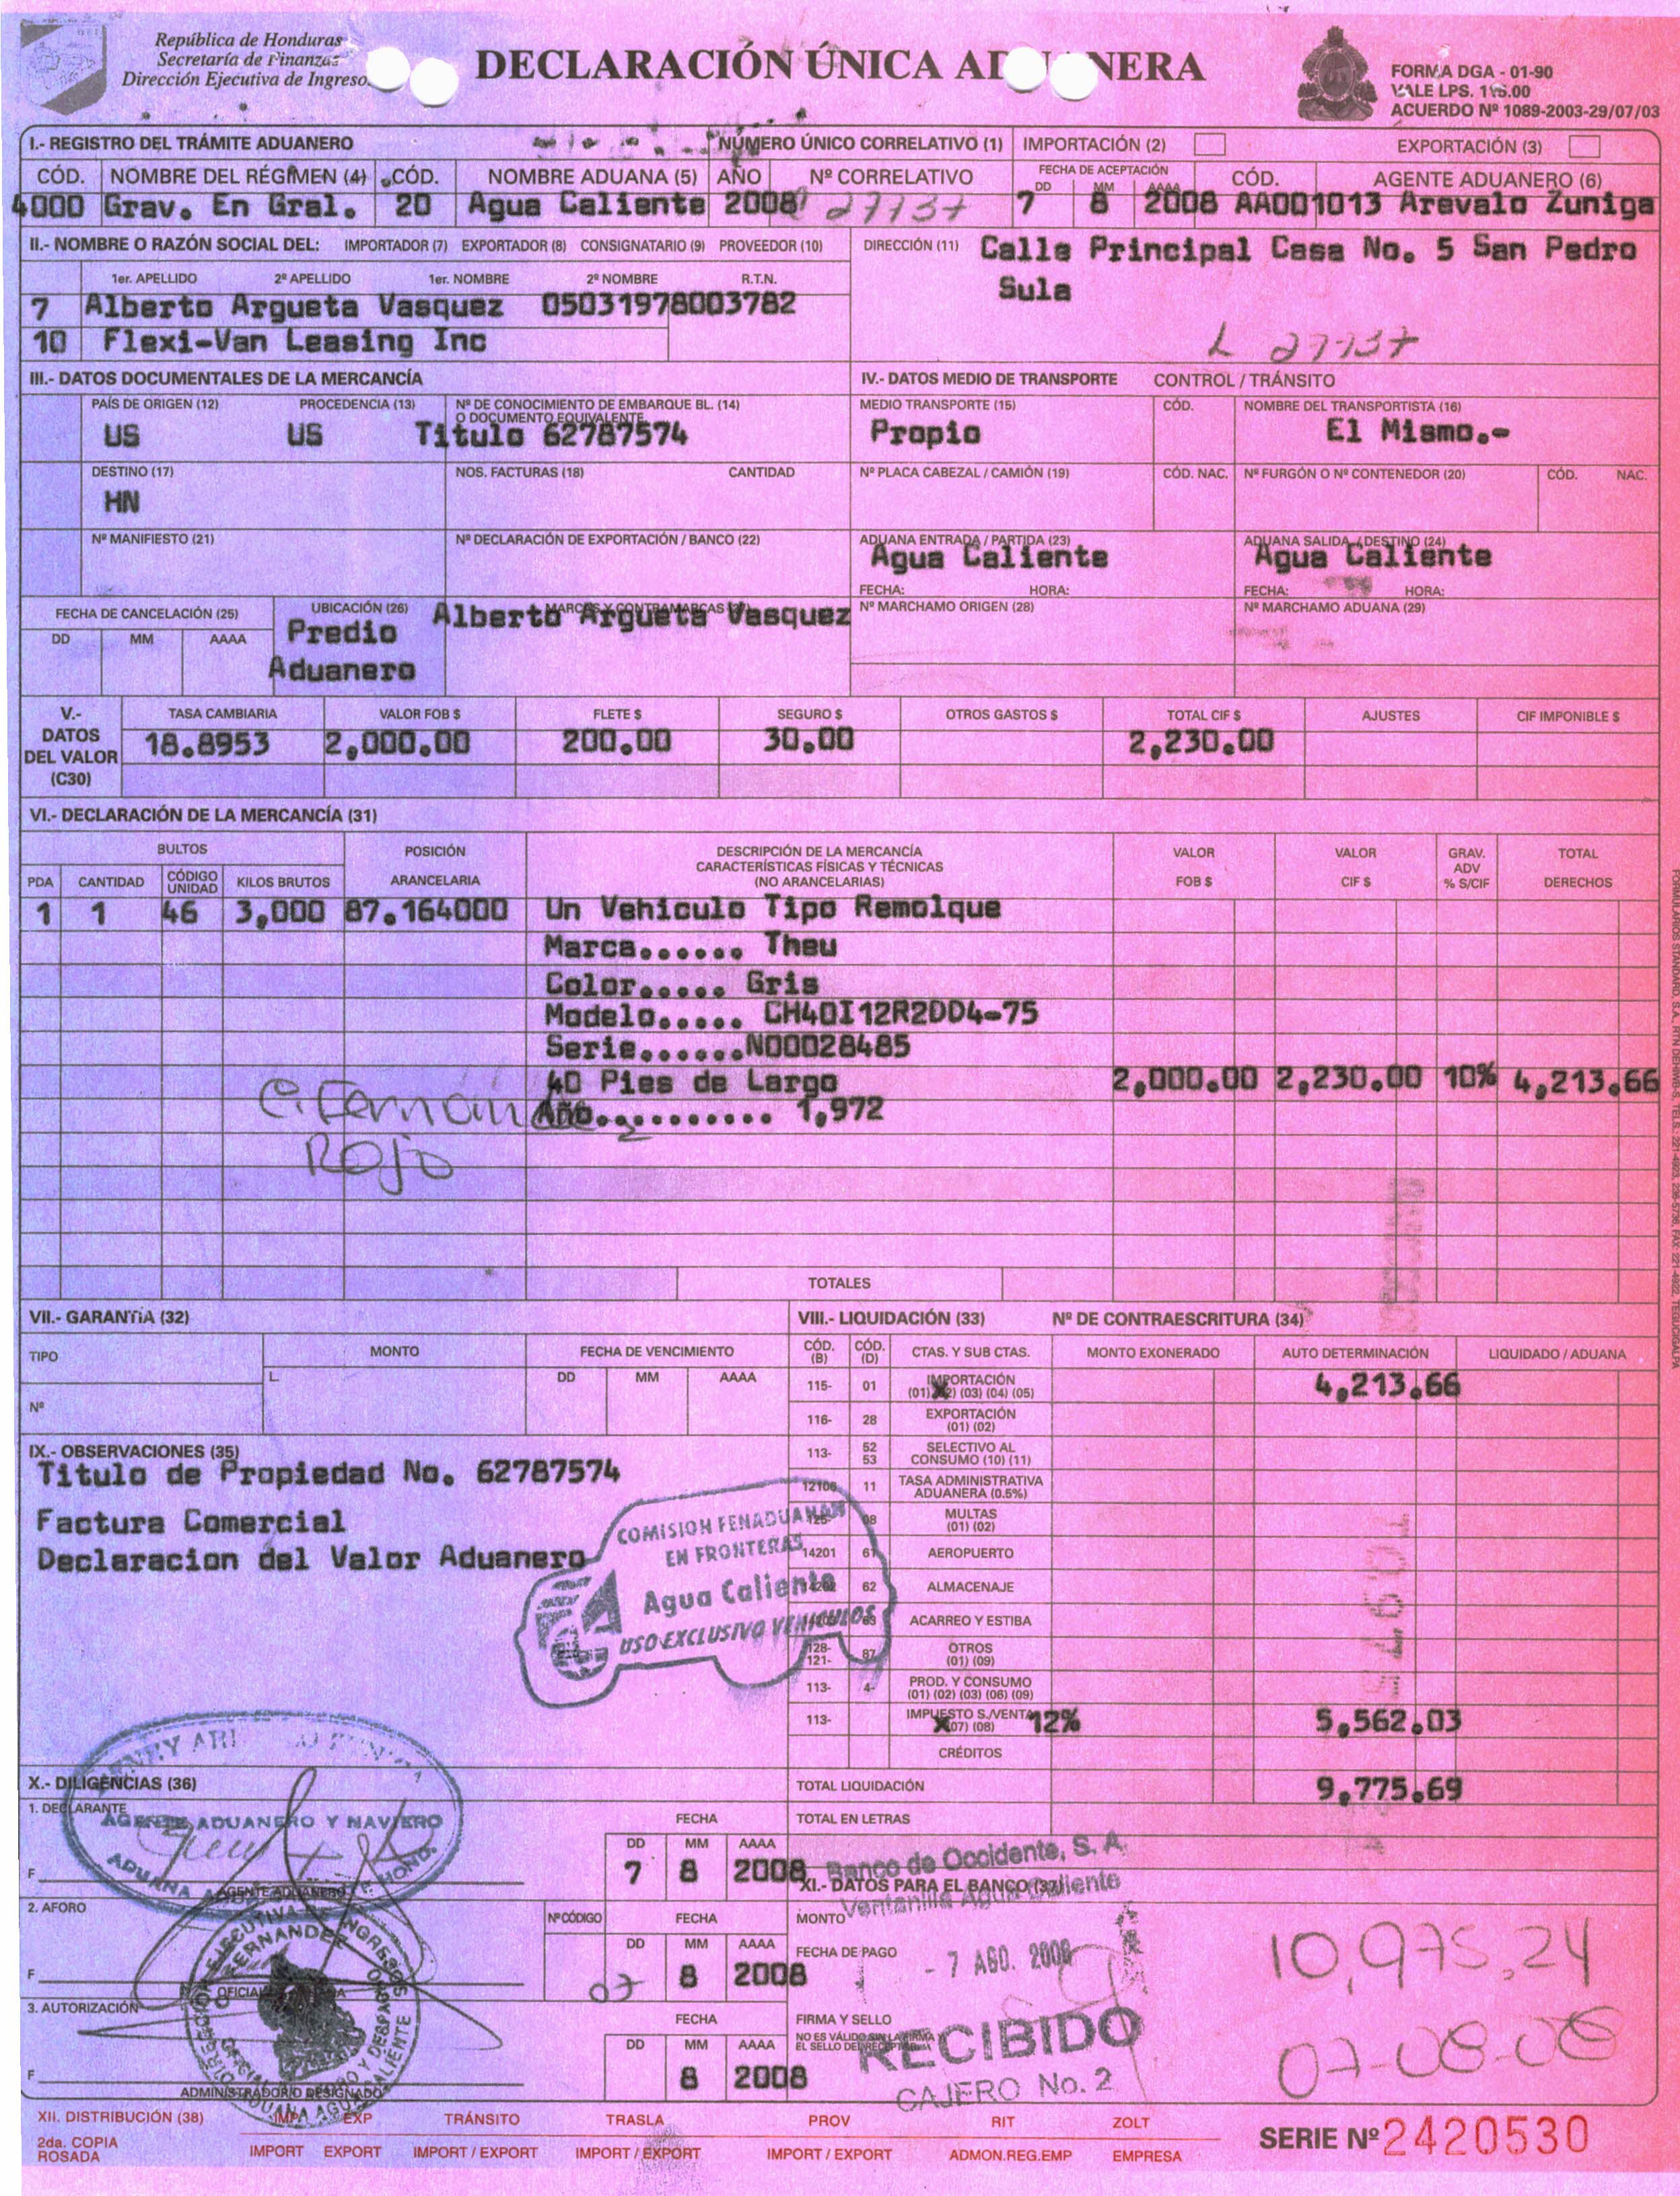 República de Honduras
Secretaría de Finanzas
Dirección Ejecutiva de Ingreso
DECLARACIÓN ÚNICA ADUANERA
FORMA DGA - 01-90
VALE LPS. 115.00
ACUERDO Nº 1089-2003-29/07/03
I.- REGISTRO DEL TRÁMITE ADUANERO
NÚMERO ÚNICO CORRELATIVO (1)
IMPORTACIÓN (2)
EXPORTACIÓN (3)
CÓD. NOMBRE DEL RÉGIMEN (4) CÓD. NOMBRE ADUANA (5) AÑO Nº CORRELATIVO FECHA DE ACEPTACIÓN CÓD. AGENTE ADUANERO (6)
DD MM AAAA
4000 Grav. En Gral. 20 Agua Caliente 2008 27737 7 8 2008 AA001013 Arevalo Zuniga
II.- NOMBRE O RAZÓN SOCIAL DEL: IMPORTADOR (7) EXPORTADOR (8) CONSIGNATARIO (9) PROVEEDOR (10)
DIRECCIÓN (11) Calle Principal Casa No. 5 San Pedro
Sula
1er. APELLIDO 2º APELLIDO 1er. NOMBRE 2º NOMBRE R.T.N.
7 Alberto Argueta Vasquez 05031978003782
10 Flexi-Van Leasing Inc
L 27737
III.- DATOS DOCUMENTALES DE LA MERCANCÍA
IV.- DATOS MEDIO DE TRANSPORTE CONTROL / TRÁNSITO
PAÍS DE ORIGEN (12) PROCEDENCIA (13) Nº DE CONOCIMIENTO DE EMBARQUE BL. (14)
O DOCUMENTO EQUIVALENTE
MEDIO TRANSPORTE (15) CÓD. NOMBRE DEL TRANSPORTISTA (16)
US US Titulo 62787574 Propio El Mismo.-
DESTINO (17) NOS. FACTURAS (18) CANTIDAD Nº PLACA CABEZAL / CAMIÓN (19) CÓD. NAC. Nº FURGÓN O Nº CONTENEDOR (20) CÓD. NAC.
HN
Nº MANIFIESTO (21) Nº DECLARACIÓN DE EXPORTACIÓN / BANCO (22) ADUANA ENTRADA / PARTIDA (23) ADUANA SALIDA / DESTINO (24)
Agua Caliente Agua Caliente
FECHA: HORA: FECHA: HORA:
FECHA DE CANCELACIÓN (25) UBICACIÓN (26) MARCAS Y CONTRAMARCAS Nº MARCHAMO ORIGEN (28) Nº MARCHAMO ADUANA (29)
DD MM AAAA Predio Alberto Argueta Vasquez
Aduanero
V.- DATOS DEL VALOR (C30)
TASA CAMBIARIA VALOR FOB $ FLETE $ SEGURO $ OTROS GASTOS $ TOTAL CIF $ AJUSTES CIF IMPONIBLE $
18.8953 2,000.00 200.00 30.00 2,230.00
VI.- DECLARACIÓN DE LA MERCANCÍA (31)
BULTOS POSICIÓN DESCRIPCIÓN DE LA MERCANCÍA VALOR VALOR GRAV. TOTAL
CARACTERÍSTICAS FÍSICAS Y TÉCNICAS ADV
PDA CANTIDAD CÓDIGO UNIDAD KILOS BRUTOS ARANCELARIA (NO ARANCELARIAS) FOB $ CIF $ % S/CIF DERECHOS
1 1 46 3,000 87.164000 Un Vehiculo Tipo Remolque
Marca...... Theu
Color..... Gris
Modelo..... CH40I12R2DD4-75
Serie......N00028485
40 Pies de Largo 2,000.00 2,230.00 10% 4,213.66
Año.......... 1,972
Rojo
TOTALES
VII.- GARANTÍA (32)
TIPO MONTO FECHA DE VENCIMIENTO
L. DD MM AAAA
Nº
VIII.- LIQUIDACIÓN (33) Nº DE CONTRAESCRITURA (34)
CÓD. (B) CÓD. (D) CTAS. Y SUB CTAS. MONTO EXONERADO AUTO DETERMINACIÓN LIQUIDADO / ADUANA
115- 01 IMPORTACIÓN 4,213.66
(01) X (03) (04) (05)
116- 28 EXPORTACIÓN
(01) (02)
113- 52 53 SELECTIVO AL
CONSUMO (10) (11)
12106 11 TASA ADMINISTRATIVA
ADUANERA (0.5%)
125- 08 MULTAS
(01) (02)
14201 61 AEROPUERTO
14202 62 ALMACENAJE
63 ACARREO Y ESTIBA
128- 121- 87 OTROS
(01) (09)
113- 4- PROD. Y CONSUMO
(01) (02) (03) (06) (09)
113- IMPUESTO S./VENTA 12% 5,562.03
X (07) (08)
CRÉDITOS
TOTAL LIQUIDACIÓN 9,775.69
TOTAL EN LETRAS
IX.- OBSERVACIONES (35)
Titulo de Propiedad No. 62787574
Factura Comercial
Declaracion del Valor Aduanero
COMISION FENADUANAH
EN FRONTERAS
Agua Caliente
USO EXCLUSIVO VEHICULOS
X.- DILIGENCIAS (36)
1. DECLARANTE
AGENTE ADUANERO Y NAVIERO
F
AGENTE ADUANERO
FECHA
DD MM AAAA
7 8 2008
Banco de Occidente, S. A.
XI.- DATOS PARA EL BANCO (37)
Ventanilla Agua Caliente
2. AFORO
Nº CÓDIGO FECHA
DD MM AAAA
07 8 2008
F
MONTO
FECHA DE PAGO
- 7 AGO. 2008
10,975.24
3. AUTORIZACIÓN
FECHA
DD MM AAAA
8 2008
F
ADMINISTRADOR/O DESIGNADO
FIRMA Y SELLO
NO ES VÁLIDO SIN LA FIRMA Y
EL SELLO DEL RECEPTOR
RECIBIDO
CAJERO No. 2
07-08-08
XII. DISTRIBUCIÓN (38) IMP. EXP TRÁNSITO TRASLA PROV RIT ZOLT
2da. COPIA
ROSADA
IMPORT EXPORT IMPORT / EXPORT IMPORT / EXPORT IMPORT / EXPORT ADMON.REG.EMP EMPRESA
SERIE Nº 2420530